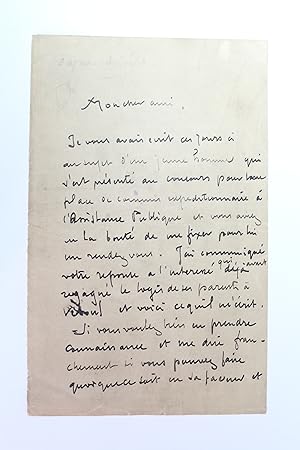 Mon cher ami,
Je vous avais écrit ces jours ci
au sujet d'un jeune homme qui
s'est présenté au concours pour une
place de commis expeditionnaire à
l'Assistance Publique et vous avez
eu la bonté de me fixer pour lui
un rendez vous. J'ai communiqué
votre reponse à l'interessé qui avait déjà
regagné le logis de ses parents à
et voici ce qu'il m'écrit.
Si vous voulez bien en prendre
connaissance et me dire fran-
chement si vous pouvez faire
quoique ce soit en sa faveur et